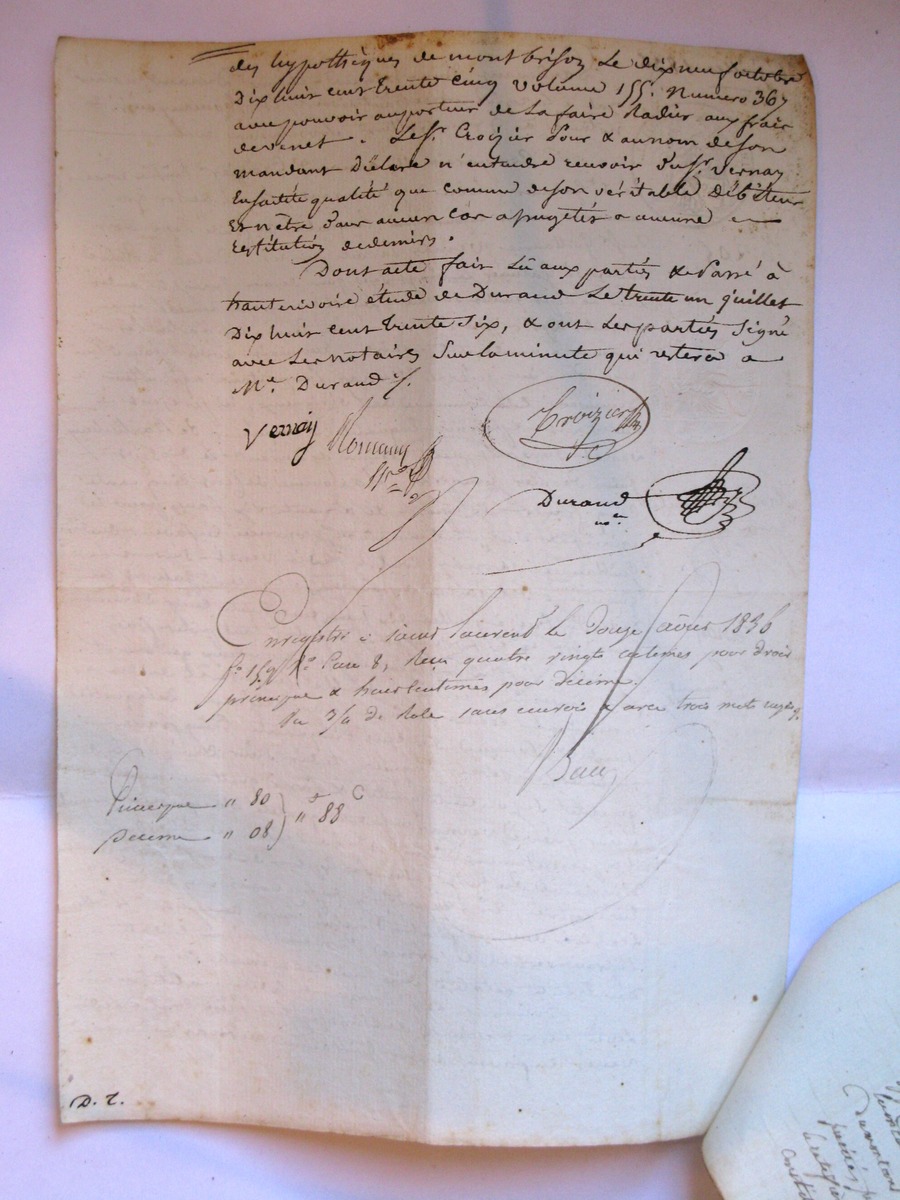 des hypothèques de montbrison Le dix neuf octobre
Dix huit cent trente cinq volume 155. Numero 367
avec pouvoir au porteur de La faire Radier aux frais
de venet. Le Sr. Croizier Pour & au nom de son
mandant Déclare n'entendre recevoir du Sr. Vernay
En sa dite qualité que comme de son véritable Débiteur
Et n'être dans aucun cas assugetir a aucune
restitution de deniers.
Dont acte fait Lû aux parties & Passé à
hauterivoire étude de Durand Le trente un juillet
Dix huit cent trente Six, & ont Les parties Signé
avec Les notaires Sur La minute qui restera a
Me. Durand
Vernay
Croizier
Durand
nore.
Enregistré à Saint Laurent Le Douze août 1836
fo. 159 Ro. Case 8, Reçu quatre vingts centimes pour droit
principal & huit centimes pour décime.
3/4 de Role sans renvois & avec trois mots rayés
Principal " 80
" 88 C
Décime " 08
D. T.